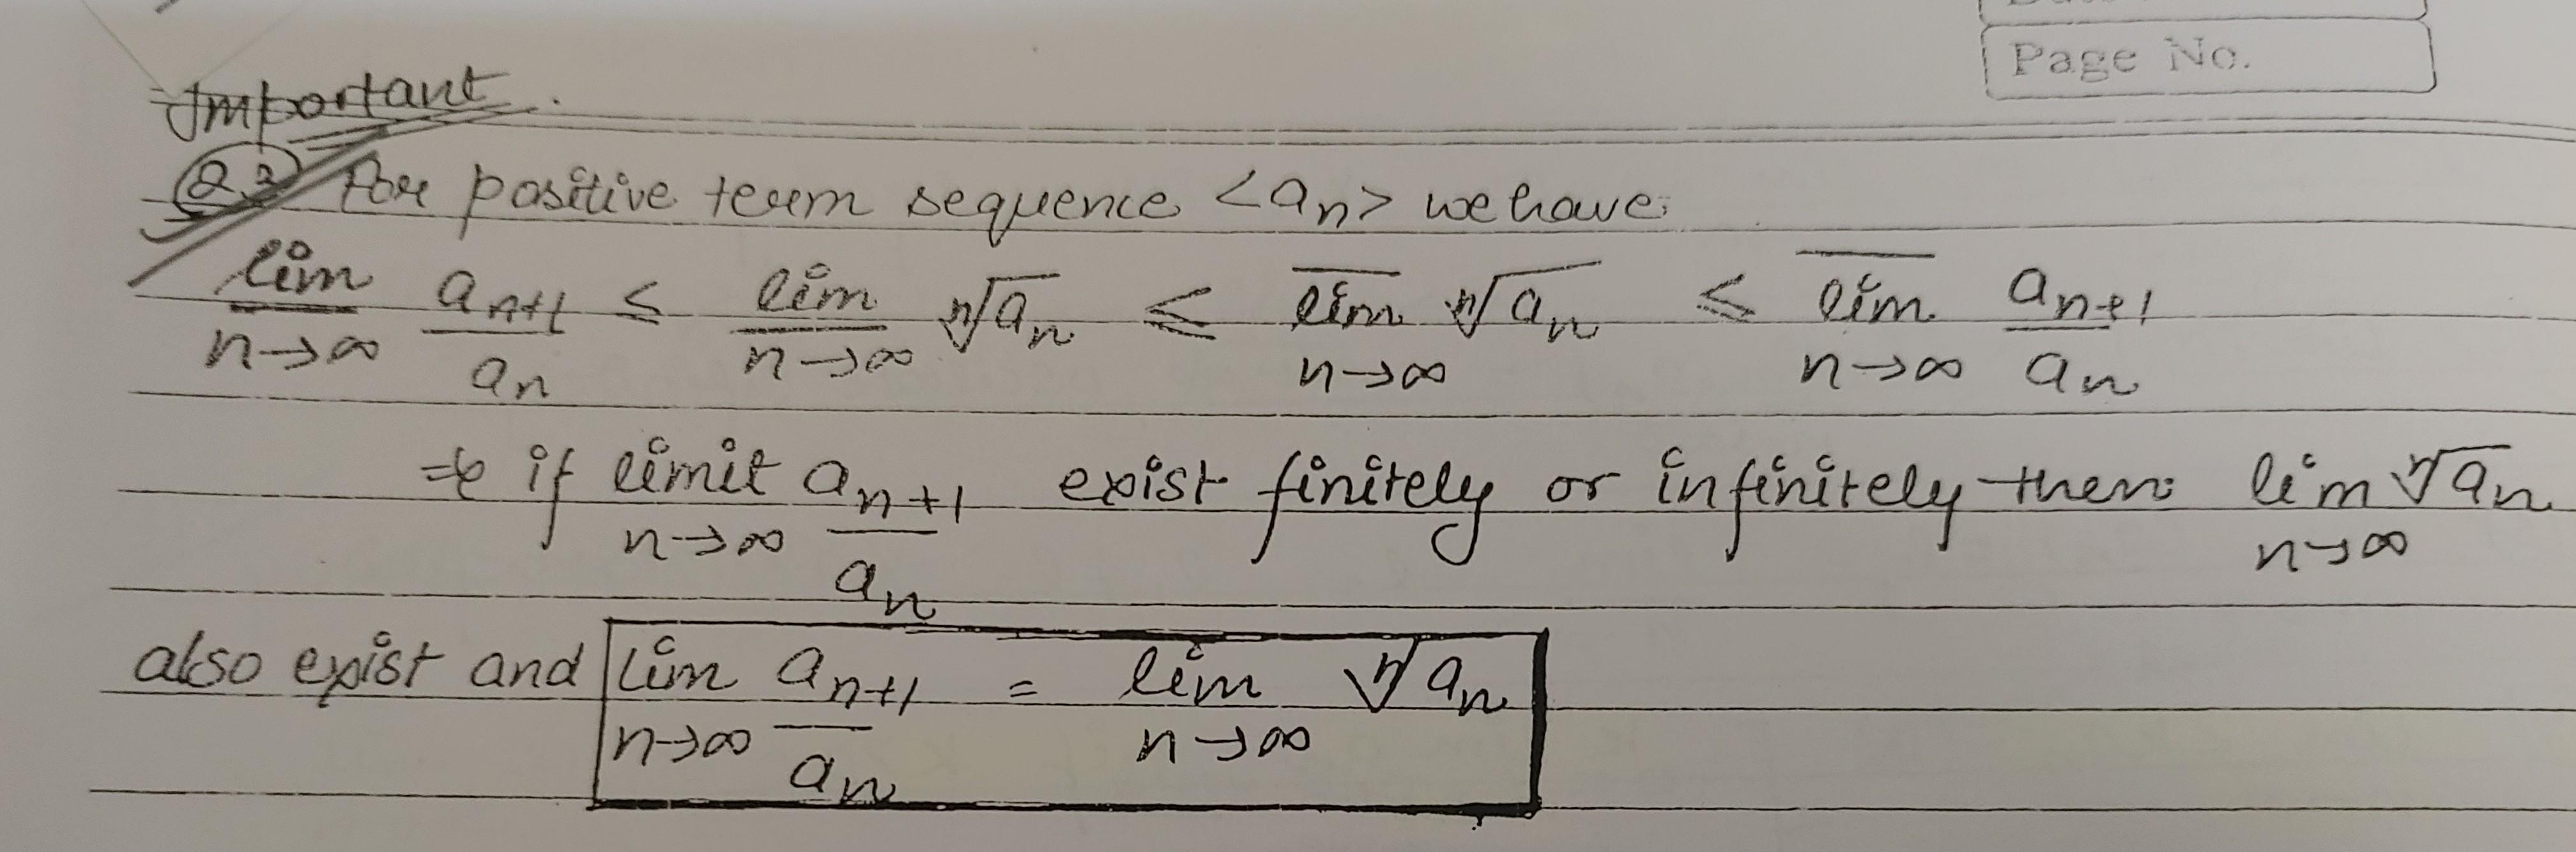 Page No.
Important.
Q.2 For positive term sequence <aₙ> we have
lim̲ n→∞ aₙ₊₁/aₙ ≤ lim̲ n→∞ ⁿ√aₙ ≤ lim̅ n→∞ ⁿ√aₙ ≤ lim̅ n→∞ aₙ₊₁/aₙ
⇒ if limit n→∞ aₙ₊₁/aₙ exist finitely or infinitely then lim n→∞ ⁿ√aₙ
also exist and lim n→∞ aₙ₊₁/aₙ = lim n→∞ ⁿ√aₙ